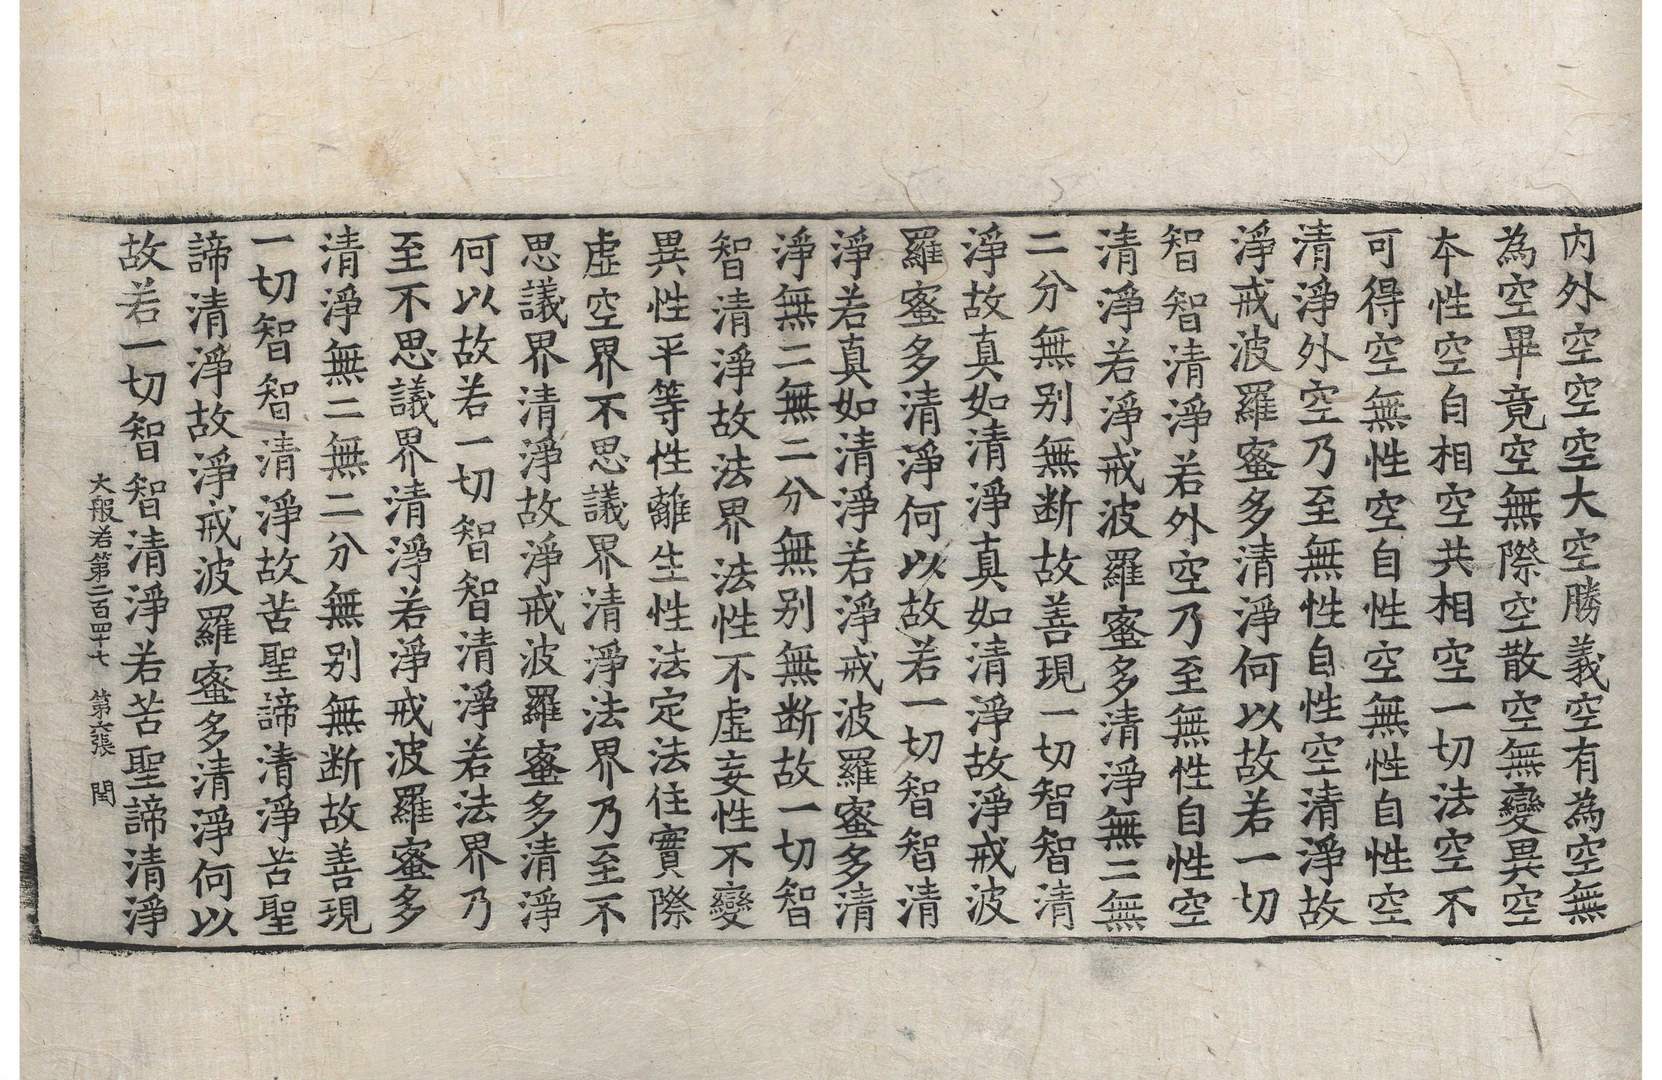 内外空空空大空勝義空有為空無
為空畢竟空無際空散空無變異空
本性空自相空共相空一切法空不
可得空無性空自性空無性自性空
清淨外空乃至無性自性空清淨故
淨戒波羅蜜多清淨何以故若一切
智智清淨若外空乃至無性自性空
清淨若淨戒波羅蜜多清淨無二無
二分無别無断故善現一切智智清
淨故真如清淨真如清淨故淨戒波
羅蜜多清淨何以故若一切智智清
淨若真如清淨若淨戒波羅蜜多清
淨無二無二分無别無断故一切智
智清淨故法界法性不虛妄性不變
異性平等性離生性法定法住實際
虛空界不思議界清淨法界乃至不
思議界清淨故淨戒波羅蜜多清淨
何以故若一切智智清淨若法界乃
至不思議界清淨若淨戒波羅蜜多
清淨無二無二分無别無断故善現
一切智智清淨故苦聖諦清淨苦聖
諦清淨故淨戒波羅蜜多清淨何以
故若一切智智清淨若苦聖諦清淨
大般若第二百四十七 第六張 閏